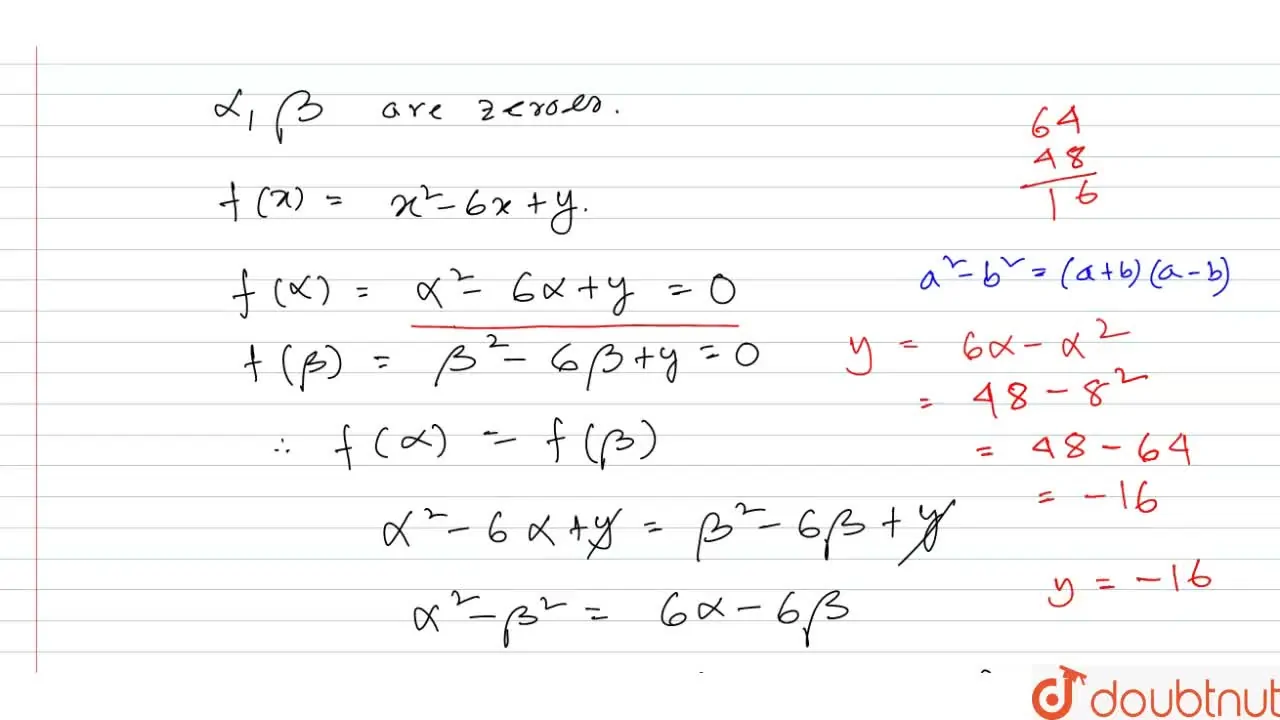 α, β are zeroes.
f(x) = x² - 6x + y.
f(α) = α² - 6α + y = 0
f(β) = β² - 6β + y = 0
∴ f(α) = f(β)
α² - 6α + y = β² - 6β + y
α² - β² = 6α - 6β
64
48
16
a² - b² = (a+b) (a-b)
y = 6α - α²
= 48 - 8²
= 48 - 64
= -16
y = -16
doubtnut